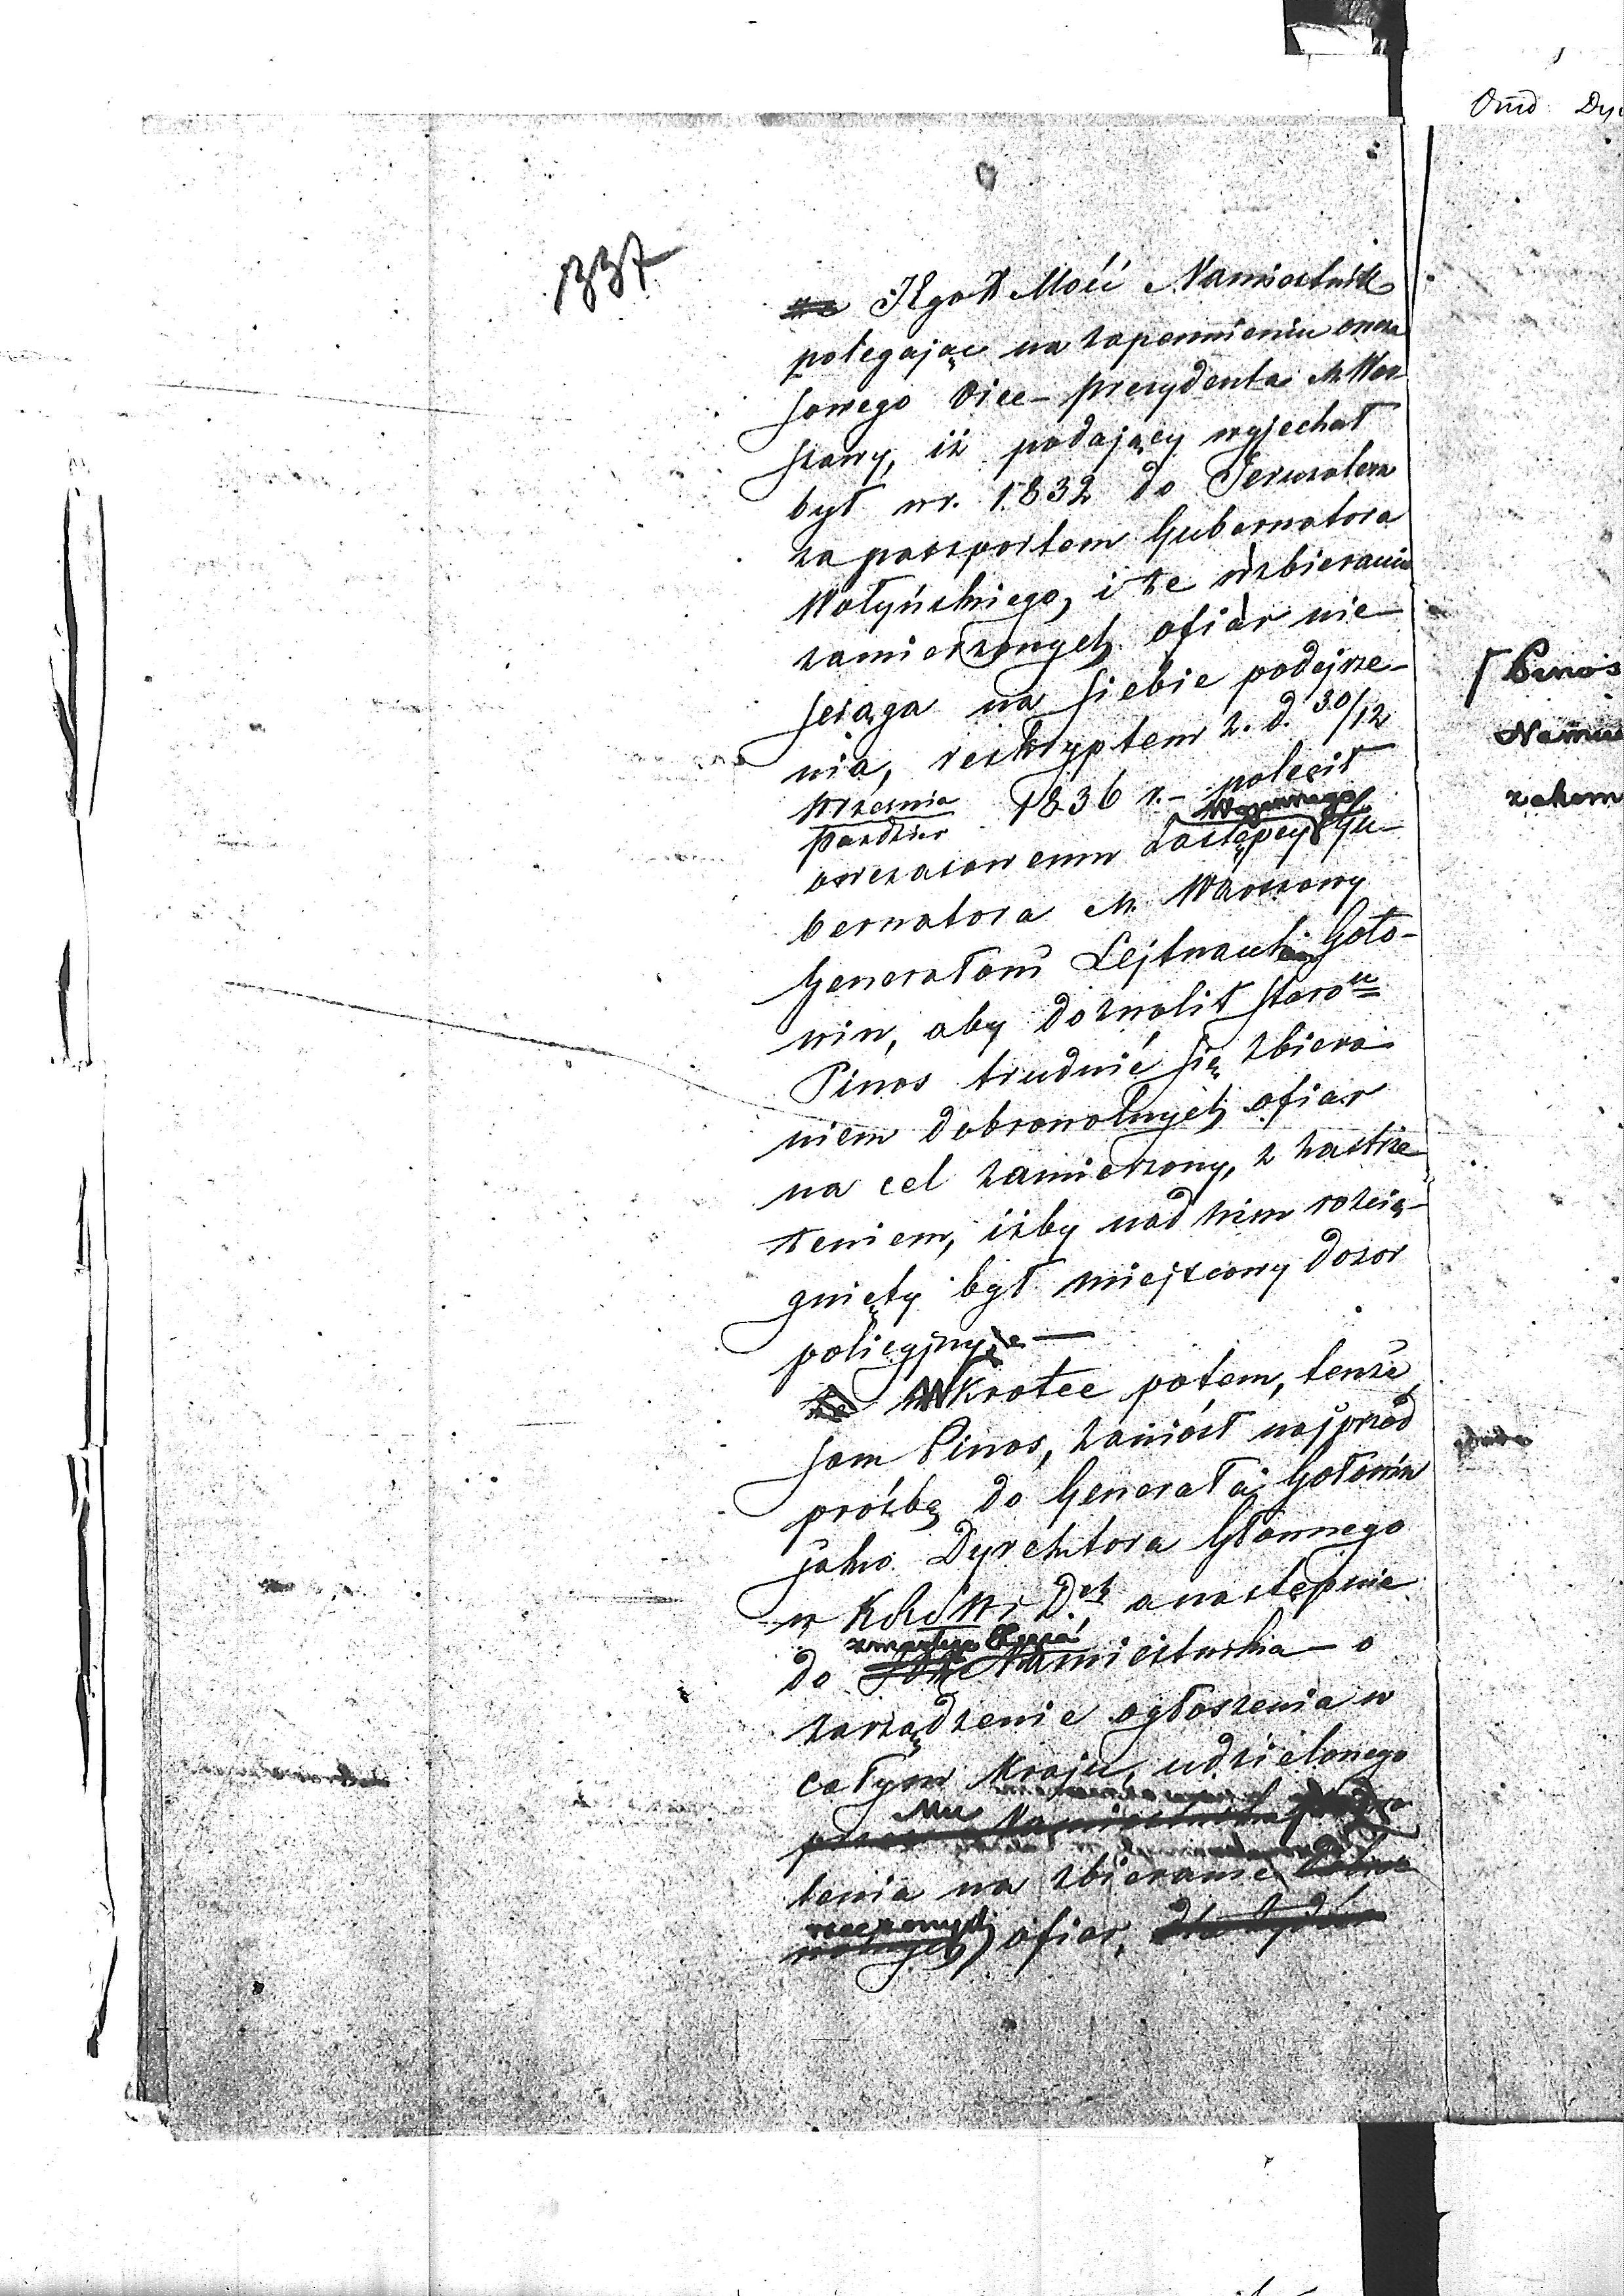 337
JXgo X Mość Namiestnik
polegając na zapewnieniu owcza
sowego Vice-prezydenta M. War
szawy, iż podający wyjechał
był w r. 1832 do Jeruzalem
za paszportem Gubernatora
Wołyńskiego, i że w zbieraniu
zamierzonych ofiar nie
ściąga na siebie podejrze-
nia, reskryptem z. d. 30/12
Września
Paździer 1836 r. – polecił
Wojennego
owczasowemu Zastępcy Gu-
bernatora M. Warszawy
Generałowi Lejtnant Goło-
win, aby dozwolił Staro
Pinos trudnić się zbiera
niem dobrowolnych ofiar
na cel zamierzony, z zastrze
żeniem, iżby nad nim rozcią-
gnięty był miejscowy dozor
policyjny —
Wkrotce potem, tenże
sam Pinos, zaniósł najprzod
prośbę do Generała Gołowin
jako Dyrektora Głównego
w K. R. S. W. i D.ch a następnie
do Namiestnika – o
zarządzenie ogłoszenia w
całym Kraju, udzielonego
Mu
przez Namiestnika
lenia na zbieranie
rzeczonych
wolnych ofiar,
Omd Dy
Pinos
zakom